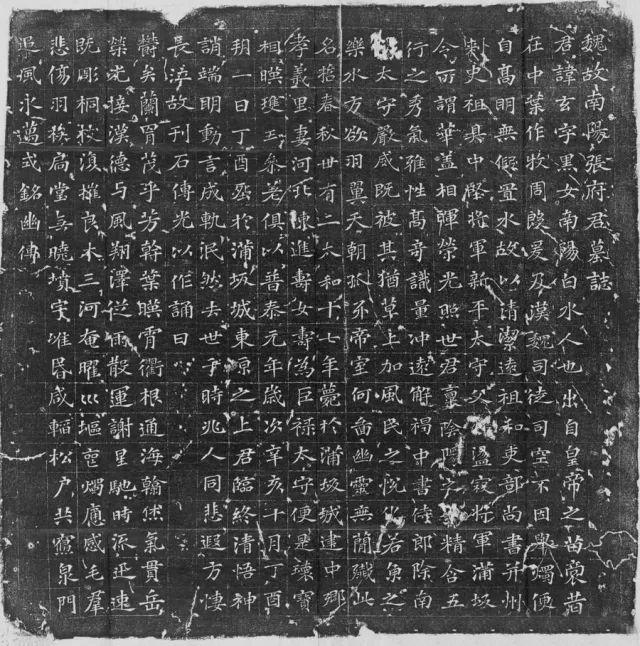 魏故南陽張府君墓誌
君諱玄字黑女南陽白水人也出自皇帝之苗裔昔
在中葉作牧周殷爰及漢魏司徒司空不因舉燭便
自高明無假置水故以清潔遠祖和吏部尚書并州
刾史祖具中堅將軍新平太守父盪寇將軍蒲坂
令所謂華盖相暉榮光照世君稟陰陽之精含五
行之秀氣雅性高奇識量沖遠解褐中書侍郎除南
太守嚴威既被其猶草上加風民之悅化若魚之
樂水方欲羽翼天朝抓牙帝室何啚幽靈無簡殲此
名哲春秋卅有二太和十七年薨於蒲坂城建中鄉
孝義里妻河北陳進壽女壽為巨祿太守便是瓌寶
相暎瓊玉參差俱以普泰元年歲次辛亥十月丁酉
朔一日丁酉葬於蒲坂城東原之上君臨終清悟神
誚端明動言成軌泯然去世于時兆人同悲遐方悽
長泣故刊石傳光以作誦曰
鬱矣蘭胄茂乎芳幹葉暎霄衢根通海翰倏氣貫岳
榮光接漢德与風翔澤從雨散運謝星馳時流迅速
既彫桐枝復摧良木三河奄曜巛壚巨燭慮感毛羣
悲傷羽族扃堂無曉墳宇唯昏咸輼松戶共寢泉門
追風永邁式銘幽傳